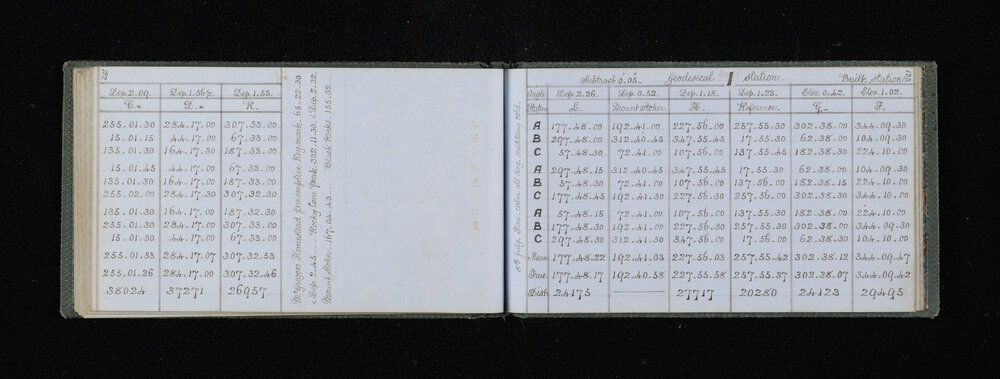 Dep. 2.09. Dep. 1.56½ Dep. 1.55.
C.* D.* R.
255.01.30 284.17.00 307.33.00
15.01.15 44.17.00 67.33.00
135.01.30 164.17.30 187.33.00
15.01.45 44.17.30 67.33.00
135.01.30 164.17.30 187.33.00
255.02.00 284.17.30 307.32.30
135.01.30 164.17.00 187.32.30
255.01.30 284.17.00 307.33.00
15.01.30 44.17.00 67.33.00
255.01.33 284.17.07 307.32.53
255.01.26 284.17.00 307.32.46
38024 37271 26957
McGregors Homestead 65.22.30
<Dep. 2.45 Rocky Cone Peak 302.11.30 <Dep. 2.32.
Mount Stoker 167.44.45 Black Rocks 155.32.
8th July. Fine, calm all day,
Subtract 0'.05" Geodesical Station. Built Station
Angle Dep. 2.26. Dep. 0.52. Dep. 1.18. Dep. 1.23. Elev. 0.42. Elev. 1.02.
Station L. Mount Stoker. H. Reference. G. F.
A 177.48.00 192.41.00 227.56.00 257.55.30 302.38.00 344.09.30
B 297.48.00 312.40.45 347.55.45 17.55.30 62.38.00 104.09.30
C 57.48.30 72.41.00 107.56.00 137.55.45 182.38.30 224.10.00
A 297.48.15 312.40.45 347.55.45 17.55.30 62.38.00 104.09.30
B 57.48.30 72.41.00 107.56.00 137.56.00 182.38.15 224.10.00
C 177.48.45 192.41.30 227.56.30 257.56.00 302.38.30 344.10.00
A 57.48.15 72.41.00 107.56.00 137.55.30 182.38.00 224.10.00
B 177.48.30 192.41.00 227.56.00 257.55.30 302.38.00 344.09.30
C 297.48.30 312.41.30 347.56.00 17.56.00 62.38.30 104.10.00
Mean 177.48.22 192.41.03 227.56.03 257.55.42 302.38.12 344.09.47
True 177.48.17 192.40.58 227.55.58 257.55.37 302.38.07 344.09.42
Dist 24175 27717 20280 24123 29495